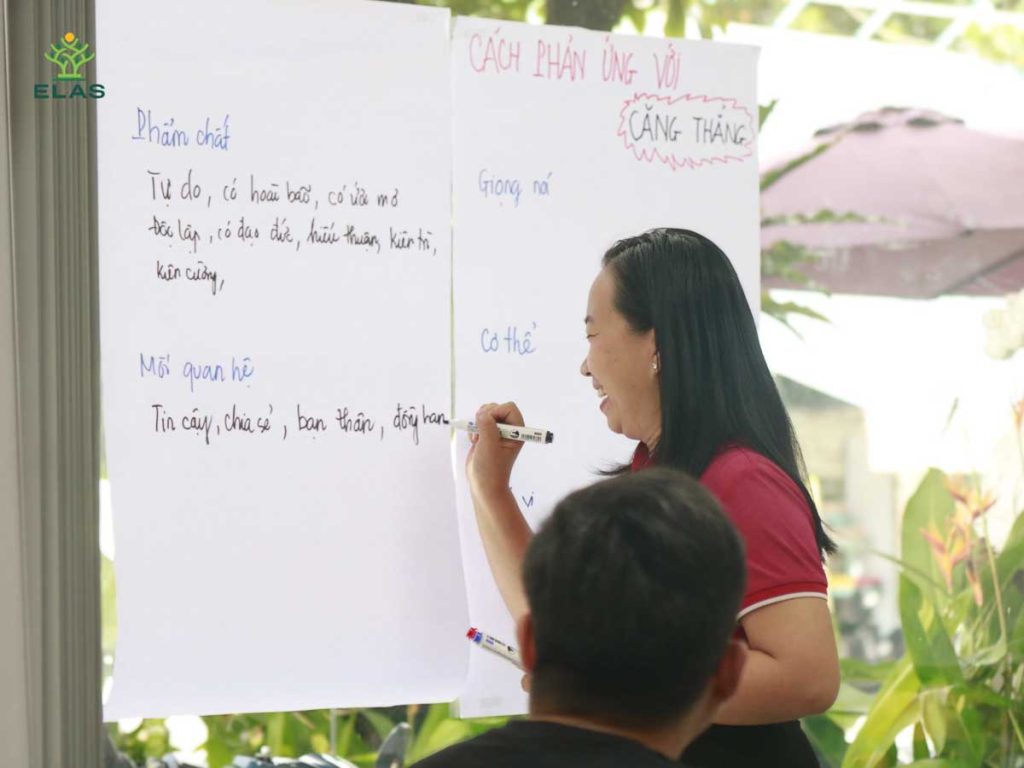 ELAS
Phẩm chất
Tự do, có hoài bão, có ước mơ
Độc lập, có đạo đức, hiếu thuận, kiên trì,
kiên cường,
Mối quan hệ
Tin cậy, chia sẻ, bạn thân, đồng hàn
CÁCH PHẢN ỨNG VỚI
CĂNG THẲNG
Giọng nó
Cơ thể
vi